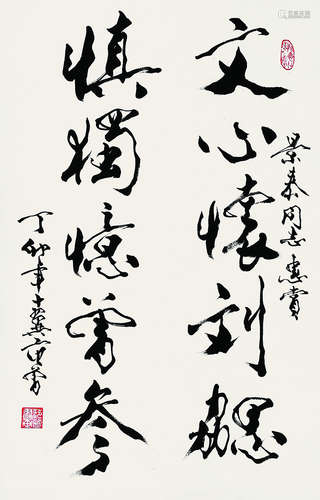 文心懷劉勰
景泰同志惠賞
慎獨憶曾參
丁卯年